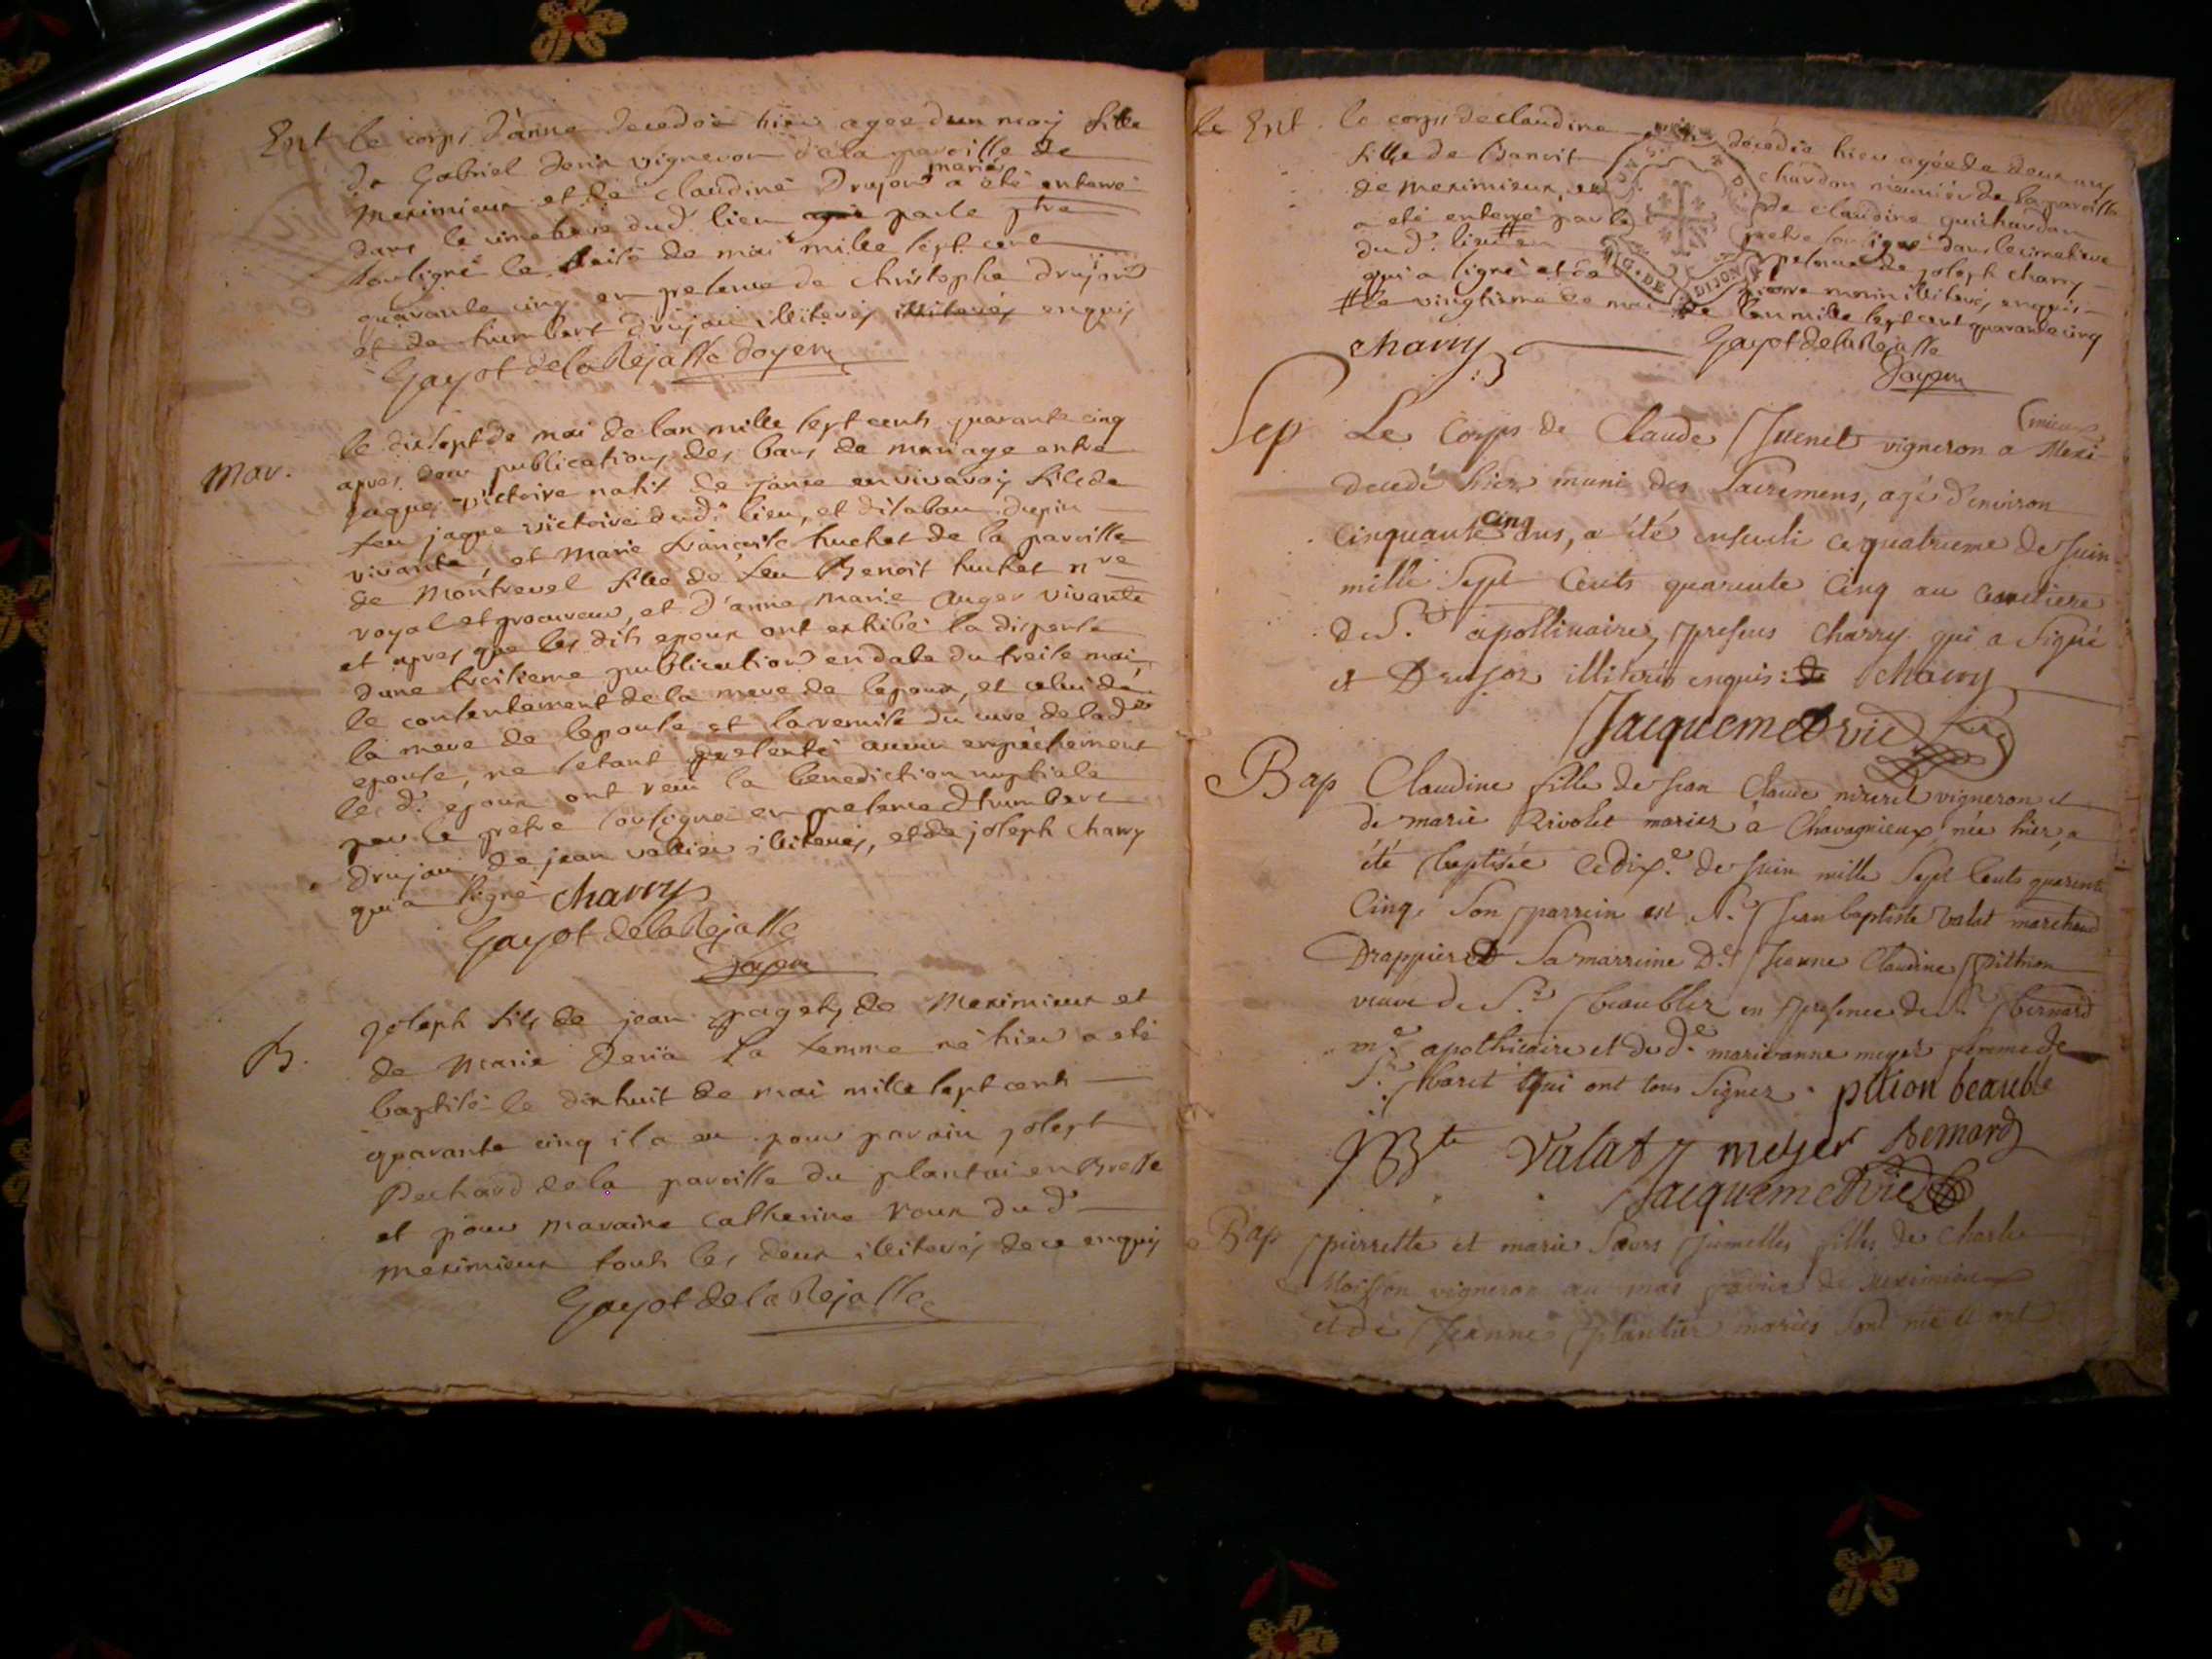 Ent le corps d'anne decedée hier agée d'un moy fille
de Gabriel Deriä vigneron de la paroisse de
Meximieux et de Claudine Drujon mariés a été enterré
dans le cimetiere dud. lieu par le ptre
soussigné le seise de mai mille sept cent
quarante cinq en presence de Christophe Drujon
et de humbert drujon illiterés illiterés enquis
Gayot de la Rejasse doyen
Mar. le dis sept de mai de lan mille sept cents quarante cinq
apres deux publications des bans de mariage entre
jaque victoire natif de en vivarois fils de
feu jaque victoire dud. lieu, et disabau dupin
vivante, et Marie françoise huchet de la paroisse
de Montrevel fille de feu Benoit huchet nre
royal et procureur, et d'anne marie auger vivante
et apres que les dits epoux ont exhibé la dispense
dune troisieme publication en date du treise mai,
le consentement de la mere de lepoux, et celui de
la mere de lepouse et la remise du curé de lad.
epouse, ne setant presenté aucun empêchement
les d. epoux ont reçu la benediction nuptiale
par le prêtre soussigné en presence d'humbert
drujon, de jean vallier illiterés, et de joseph charry
qui a signé charry
Gayot de la Rejasse
doyen
B. joseph fils de jean pagets de Meximieux et
de Marie Deriä sa femme né hier a eté
baptisé le dix huit de mai mille sept cents
quarante cinq il a eu pour parain joseph
Pechard de la paroisse du plantai en Bresse
et pour maraine Catherine roux dud.
meximieux touts les deux illiterés de ce enquis
Gayot de la Rejasse
le Ent. le corps de claudine decedée hier agée de deux ans
fille de Benoit chardon meunier de la paroisse
de meximieux, et de claudine guichardan
a eté enterré par le pretre soussigné dans le cimetiere
dud. lieu # en presence de joseph charry
qui a signé et de pierre monin illiterés enquis
# le vingtieme de mai de lan mille sept cent quarante cinq
G. DE DIJON
charry Gayot de la Rejasse
doyen
Sep Le Corps de Claude Juenet vigneron a Mexi
(mieux
decedé hier muni des Sacremens, agé d'environ
cinquante cinq ans, a été enseveli ce quatrieme de Juin
mille Sept Cents quarente Cinq au Cemetiere
de St. apollinaire, presens Charry qui a Signé
et Drujon illiterés enquis: de charry
Jacquemet vic
Bap Claudine fille de Jean Claude vigneron et
de marie Rivolet mariez a Chavagnieux née hier, a
été baptisée ce dixe. de Juin mille Sept Cents quarente
Cinq. Son parrein est Sr. Jean baptiste Valat marchand
Drappier et Sa marreine De. Jeanne Claudine Pithion
veuve de Sr. beaublez en presence de Sr. bernard
me. apothicaire et de de. marie anne meyer femme de
Sr. baret qui ont tous Signez. pition beauble
JBte Valat meyer Bernard
Jacquemet vic
Bap pierrette et marie Sœurs Jumelles filles de Charle
Moisson vigneron au mas de meximieux
et de Jeanne plantier mariés Sont née et ont